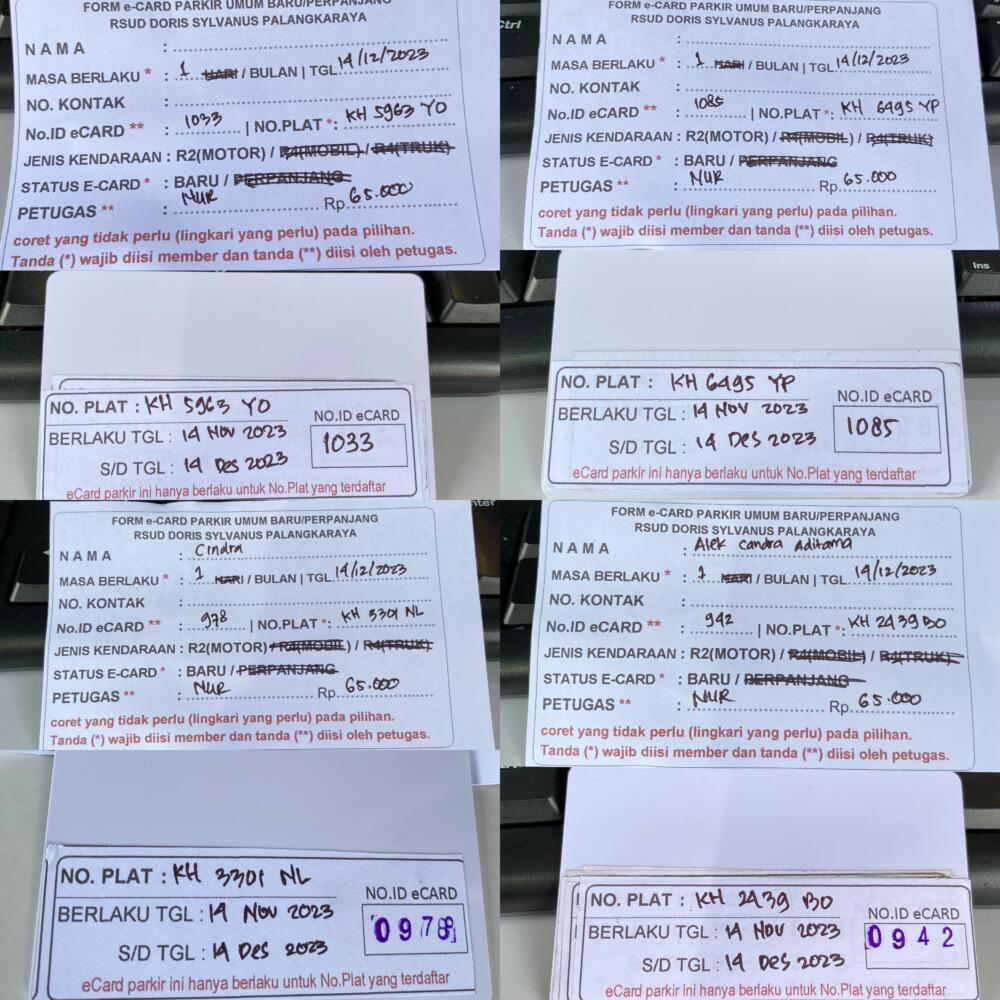 FORM e-CARD PARKIR UMUM BARU/PERPANJANG
RSUD DORIS SYLVANUS PALANGKARAYA
NAMA :
MASA BERLAKU * : 1 HARI / BULAN | TGL 14/12/2023
NO. KONTAK :
No.ID eCARD ** : 1033 | NO.PLAT *: KH 5963 YO
JENIS KENDARAAN : R2(MOTOR) / R4(MOBIL) / R4(TRUK)
STATUS E-CARD * : BARU / PERPANJANG
PETUGAS ** : NUR Rp. 65.000
coret yang tidak perlu (lingkari yang perlu) pada pilihan.
Tanda (*) wajib diisi member dan tanda (**) diisi oleh petugas.
NO. PLAT : KH 5963 YO
NO.ID eCARD
BERLAKU TGL : 14 NOV 2023
1033
S/D TGL : 14 DES 2023
eCard parkir ini hanya berlaku untuk No.Plat yang terdaftar
Ctrl
FORM e-CARD PARKIR UMUM BARU/PERPANJANG
RSUD DORIS SYLVANUS PALANGKARAYA
NAMA :
MASA BERLAKU * : 1 HARI / BULAN | TGL 14/12/2023
NO. KONTAK :
No.ID eCARD ** : 1085 | NO.PLAT *: KH 6495 YP
JENIS KENDARAAN : R2(MOTOR) / R4(MOBIL) / R4(TRUK)
STATUS E-CARD * : BARU / PERPANJANG
PETUGAS ** : NUR Rp. 65.000
coret yang tidak perlu (lingkari yang perlu) pada pilihan.
Tanda (*) wajib diisi member dan tanda (**) diisi oleh petugas.
Ins
NO. PLAT : KH 6495 YP
NO.ID eCARD
BERLAKU TGL : 14 NOV 2023
1085
S/D TGL : 14 DES 2023
eCard parkir ini hanya berlaku untuk No.Plat yang terdaftar
FORM e-CARD PARKIR UMUM BARU/PERPANJANG
RSUD DORIS SYLVANUS PALANGKARAYA
NAMA : Cindra
MASA BERLAKU * : 1 HARI / BULAN | TGL 14/12/2023
NO. KONTAK :
No.ID eCARD ** : 978 | NO.PLAT *: KH 3301 NL
JENIS KENDARAAN : R2(MOTOR) / R4(MOBIL) / R4(TRUK)
STATUS E-CARD * : BARU / PERPANJANG
PETUGAS ** : NUR Rp. 65.000
coret yang tidak perlu (lingkari yang perlu) pada pilihan.
Tanda (*) wajib diisi member dan tanda (**) diisi oleh petugas.
NO. PLAT : KH 3301 NL
NO.ID eCARD
BERLAKU TGL : 14 NOV 2023
0978
S/D TGL : 14 DES 2023
eCard parkir ini hanya berlaku untuk No.Plat yang terdaftar
FORM e-CARD PARKIR UMUM BARU/PERPANJANG
RSUD DORIS SYLVANUS PALANGKARAYA
NAMA : Alek Candra Aditama
MASA BERLAKU * : 1 HARI / BULAN | TGL 14/12/2023
NO. KONTAK :
No.ID eCARD ** : 942 | NO.PLAT *: KH 2439 BO
JENIS KENDARAAN : R2(MOTOR) / R4(MOBIL) / R4(TRUK)
STATUS E-CARD * : BARU / PERPANJANG
PETUGAS ** : NUR Rp. 65.000
coret yang tidak perlu (lingkari yang perlu) pada pilihan.
Tanda (*) wajib diisi member dan tanda (**) diisi oleh petugas.
NO. PLAT : KH 2439 BO
NO.ID eCARD
BERLAKU TGL : 14 NOV 2023
0942
S/D TGL : 14 DES 2023
eCard parkir ini hanya berlaku untuk No.Plat yang terdaftar